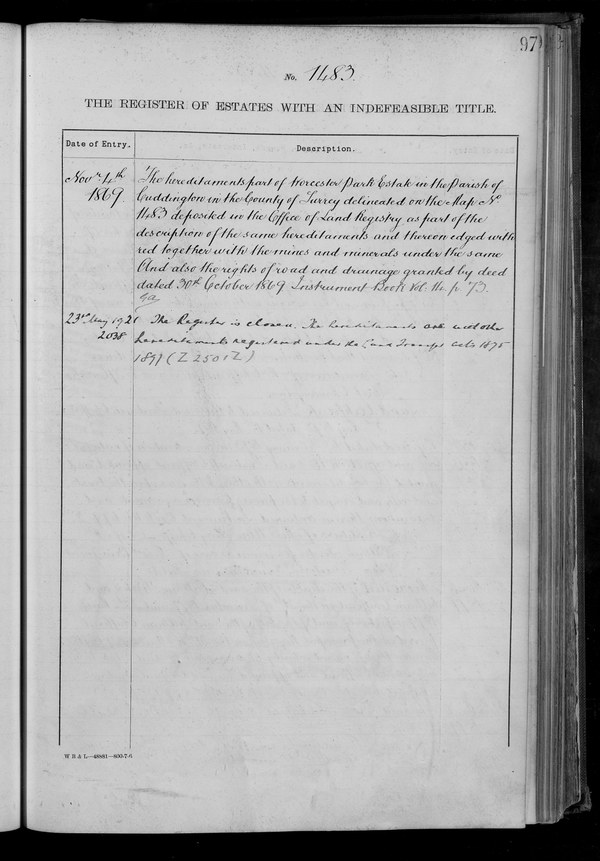 97
No. 1483.
THE REGISTER OF ESTATES WITH AN INDEFEASIBLE TITLE.
Date of Entry.
Description.
Novr. 4th
1869
The hereditaments part of Worcester Park Estate in the Parish of
Cuddington in the County of Surrey delineated on the Map No
1483 deposited in the Office of Land Registry as part of the
description of the same hereditaments and thereon edged with
red together with the mines and minerals under the same
And also the rights of road and drainage granted by deed
dated 30th October 1869 Instrument Book Vol. 16 p 73.
23rd May 1921
2038
The Register is closed. The hereditaments are with other
hereditaments registered under the Land Transfer Acts 1875
1897 (Z 2501Z)
W B & L.—48881—800-7-6.